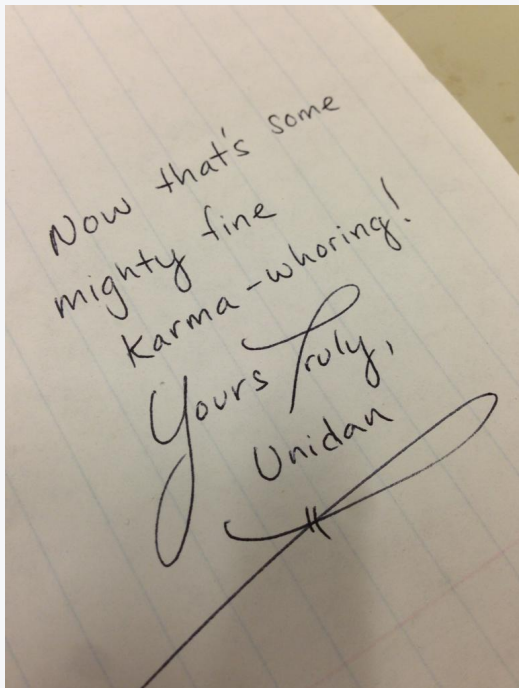 Now that's some
mighty fine
karma-whoring!
Yours Truly,
Unidan